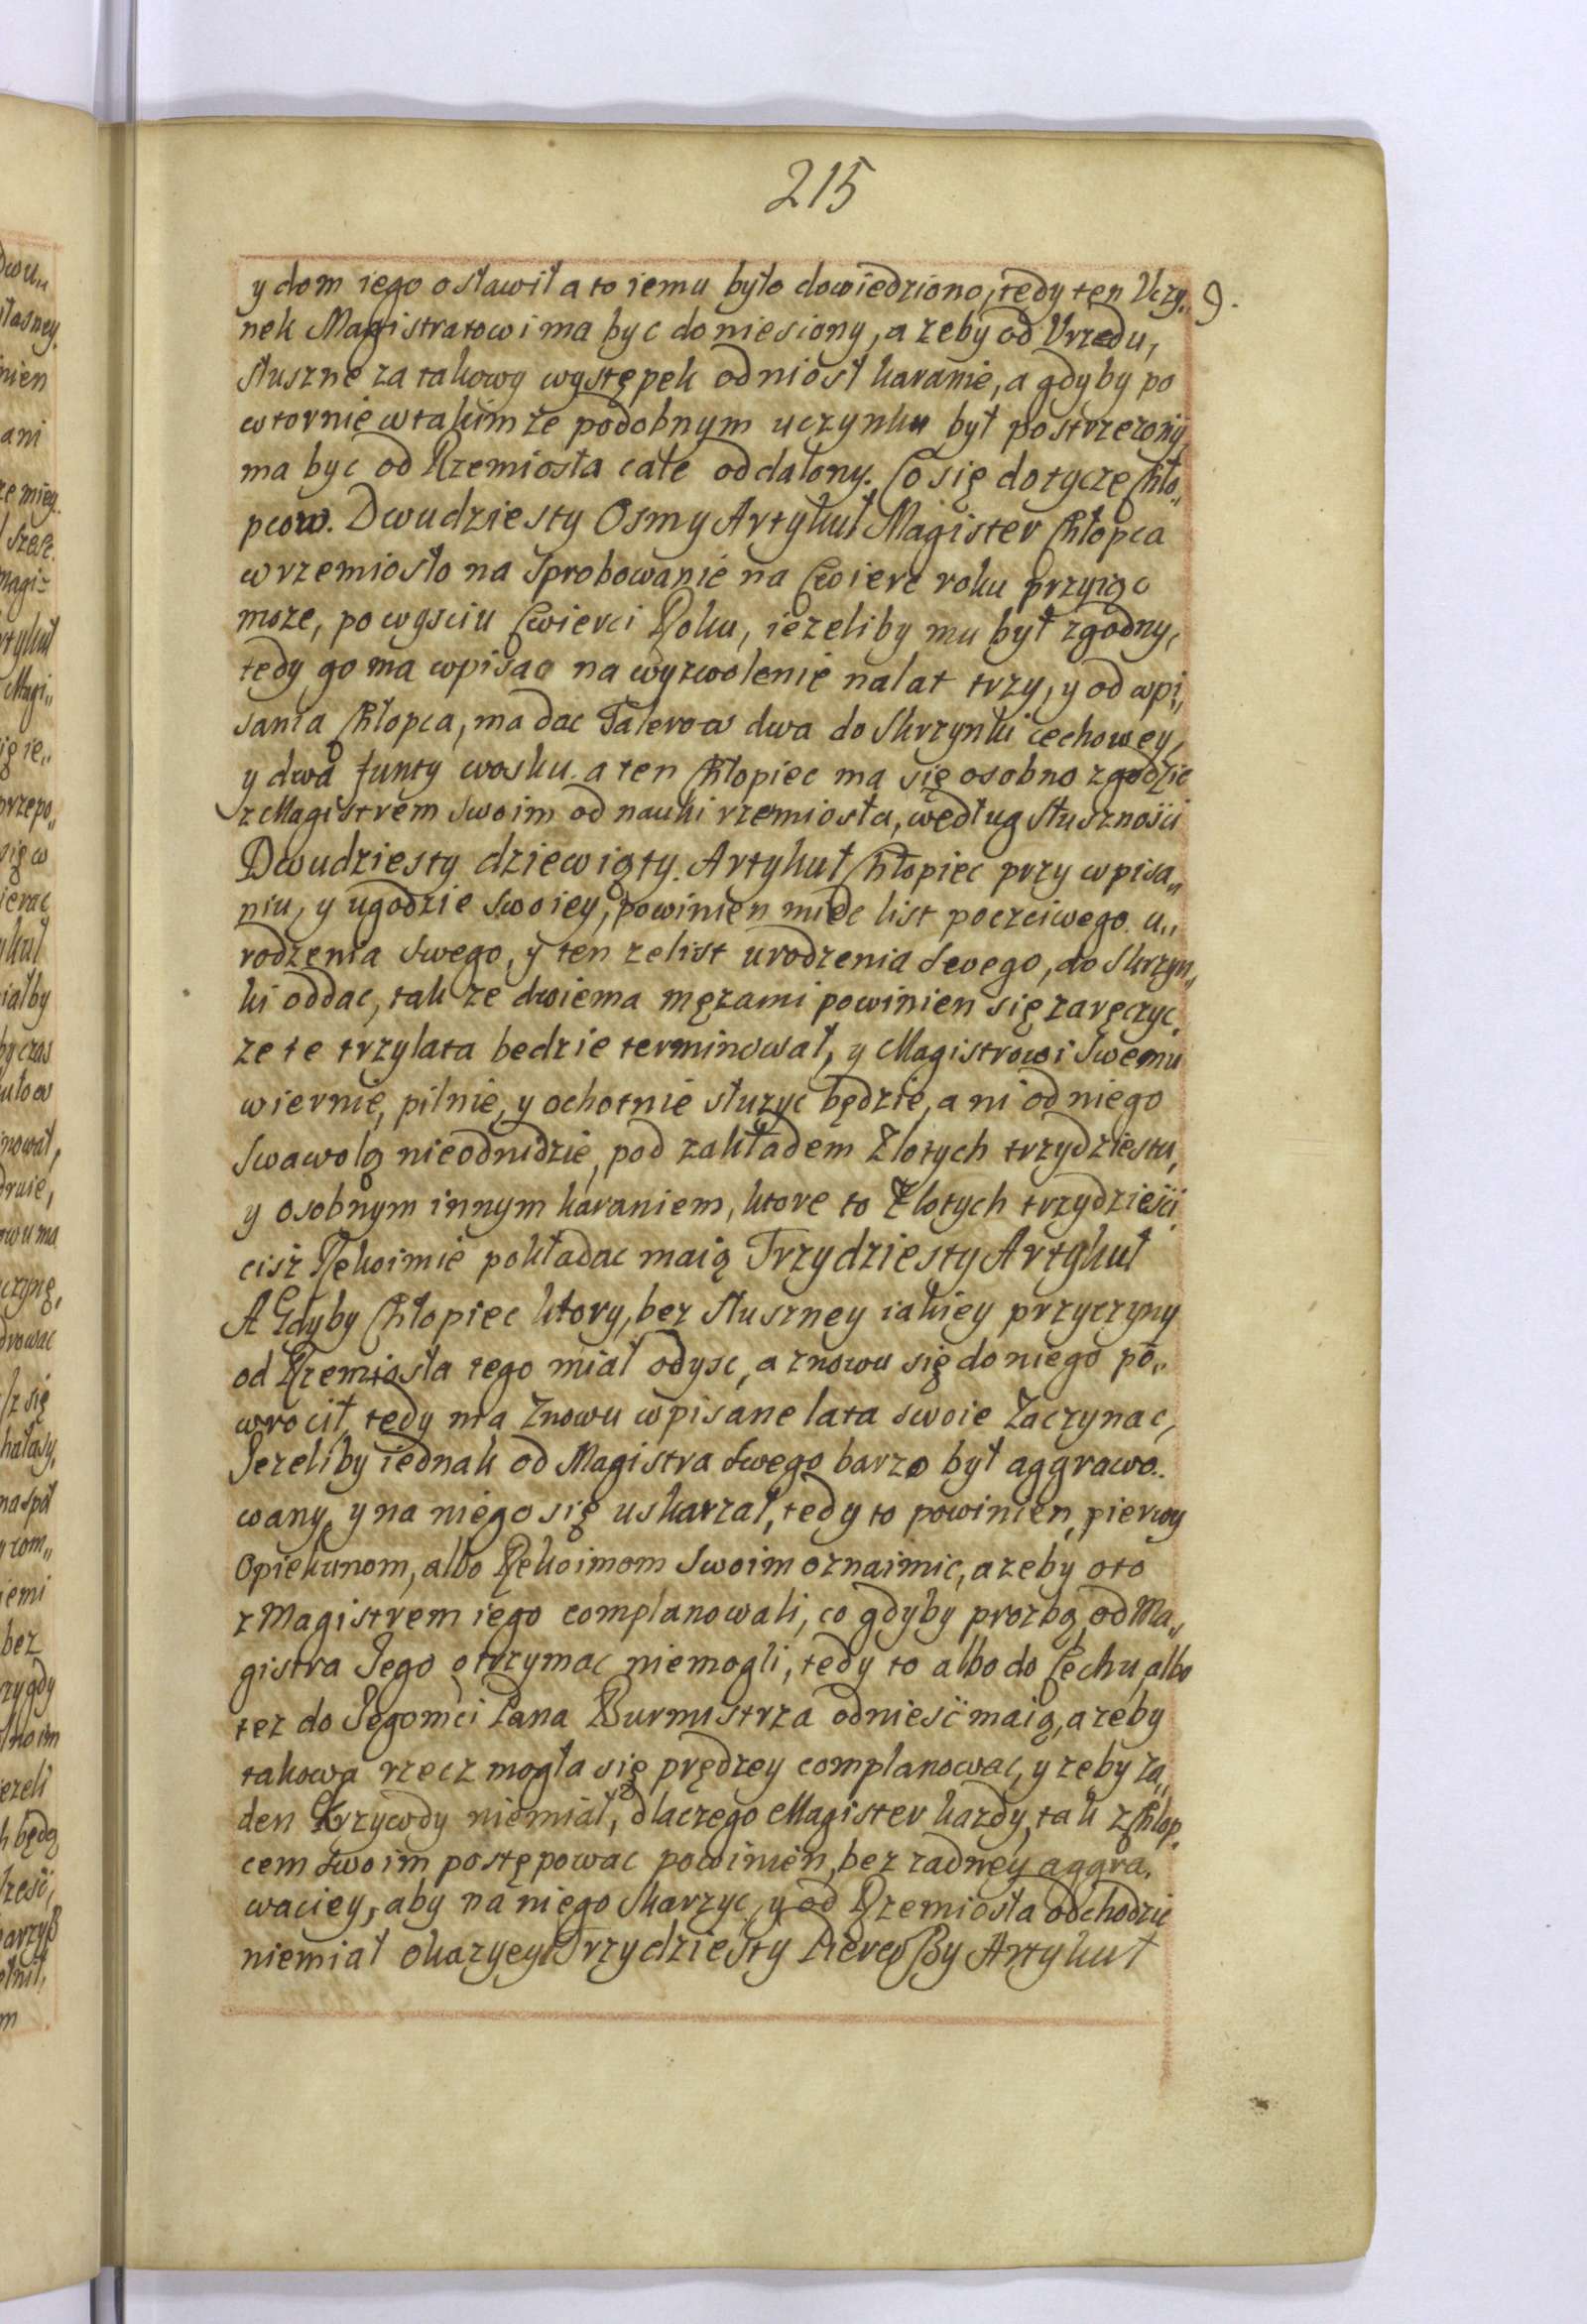 215
y dom iego osławił a to iemu było dowiedziono, tedy ten Uczy„ 9.
nek Magistratowi ma byc doniesiony, a zeby od Vrzedu,
słuszne za takowy występek odniosł karanie, a gdyby po
wtornie w takimze podobnym uczynku był postrzezony
ma byc od Rzemiosła całe oddalony. Co się dotycze Chło„
pcow. Dwudziesty Osmy Artykuł Magister Chłopca
w rzemiosło na sprobowanie na Cwierc roku przyiąc
moze, po wysciu Cwierci Roku, iezeliby mu był zgodny,
tedy go ma wpisac na wyzwolenie na lat trzy, y od wpi„
sania Chłopca, ma dac Talerow dwa do Skrzynki cechowey,
y dwa funty wosku. a ten Chłopiec ma się osobno zgodzic
z Magistrem swoim od nauki rzemiosła, według słusznosci
Dwudziesty dziewiąty. Artykuł Chłopiec przy wpisa„
niu, y ugodzie swoiey, powinien miec list poczciwego u„
rodzenia swego, y ten ze list urodzenia swego, do Skrzyn„
ki oddac, tak ze dwiema męzami powinien się zaręczyc,
ze te trzy lata bedzie terminował, y Magistrowi swemu
wiernie, pilnie, y ochotnie słuzyc będzie, ani od niego
swawolą nieodnidzie, pod zakładem Złotych trzydziestu,
y osobnym innym karaniem, ktore to Złotych trzydziesci
cisz Rękoimie pokładac maią Trzydziesty Artykuł
A Gdyby Chłopiec ktory, bez słuszney iakiey przyczyny
od Rzemiosła tego miał odysc, a znowu się do niego po„
wrocił, tedy ma znowu wpisane lata swoie zaczynac,
Jezeliby iednak od Magistra swego barzo był aggrawo„
wany, y na niego się uskarzał, tedy to powinien, pierwy
Opiekunom, albo Rękoimom swoim oznaimic, a zeby oto
z Magistrem iego complanowali, co gdyby prozbą od Ma„
gistra Jego otrzymac niemogli, tedy to albo do Cechu, albo
tez do Jegomci Pana Burmistrza odniesc maią, a zeby
takowa rzecz mogła się prędzey complanowac, y zeby za„
den krzywdy niemiał, dlaczego Magister kazdy, tak z Chłop„
cem swoim postępowac powinien, bez zadney aggra„
waciey, aby na niego skarzyc, y od Rzemiosła odchodzic
niemiał okazyey. Trzydziesty Pierwszy Artykuł